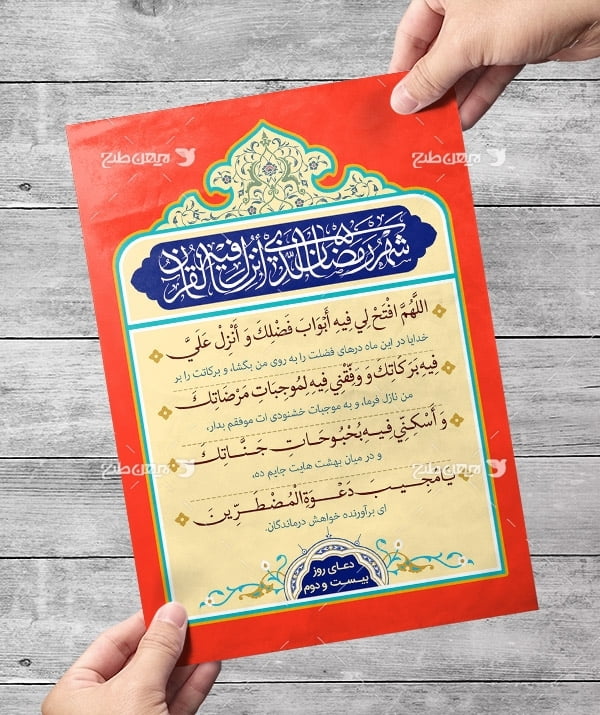 میهن طرح
میهن طرح
شهر رمضان الذي أنزل فيه القرآن
اللَّهُمَّ افْتَحْ لِي فِيهِ أَبْوَابَ فَضْلِكَ وَ أَنْزِلْ عَلَيَّ
خدایا در این ماه درهای فضلت را به روی من بگشا، و برکاتت را بر
فِيهِ بَرَكَاتِكَ وَ وَفِّقْنِي فِيهِ لِمُوجِبَاتِ مَرْضَاتِكَ
من نازل فرما، و به موجبات خشنودی ات موفقم بدار،
وَ أَسْكِنِّي فِيهِ بُحْبُوحَاتِ جَنَّاتِكَ
و در میان بهشت هایت جایم ده،
يَا مُجِيبَ دَعْوَةِ الْمُضْطَرِّينَ
ای برآورنده خواهش درماندگان.
میهن طرح
میهن طرح
دعای روز
بیست و دوم